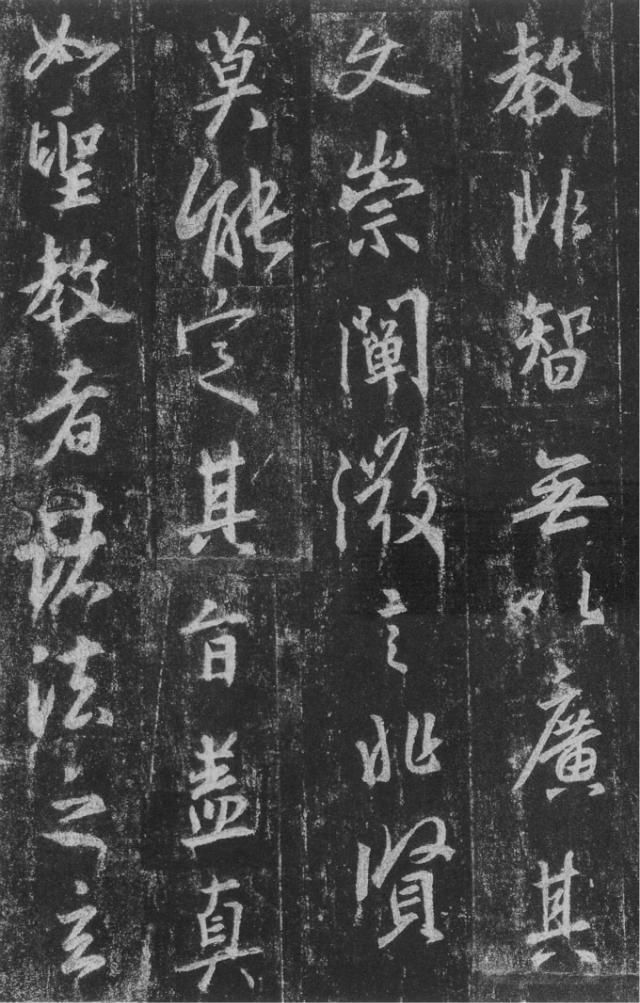 教非智無以廣其
文崇闡微言非賢
莫能定其旨盖真
如聖教者諸法之玄